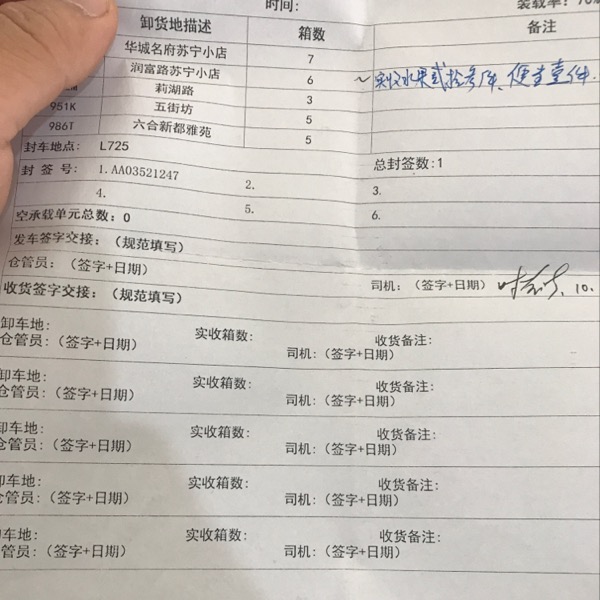 时间: 装载率:
卸货地描述 箱数 备注
华城名府苏宁小店 7
润富路苏宁小店 6 ~实收水果贰拾叁件、便当壹件.
莉湖路 3
951K 五街坊 5
986T 六合新都雅苑 5
封车地点: L725
封签号: 1.AA03521247 2. 总封签数:1
3.
4. 5. 6.
空承载单元总数:0
发车签字交接:(规范填写)
仓管员:(签字+日期) 司机:(签字+日期) 10.
收货签字交接:(规范填写)
卸车地: 实收箱数: 收货备注:
仓管员:(签字+日期) 司机:(签字+日期)
卸车地: 实收箱数: 收货备注:
仓管员:(签字+日期) 司机:(签字+日期)
卸车地: 实收箱数: 收货备注:
仓管员:(签字+日期) 司机:(签字+日期)
卸车地: 实收箱数: 收货备注:
仓管员:(签字+日期) 司机:(签字+日期)
卸车地: 实收箱数: 收货备注:
管员:(签字+日期) 司机:(签字+日期)